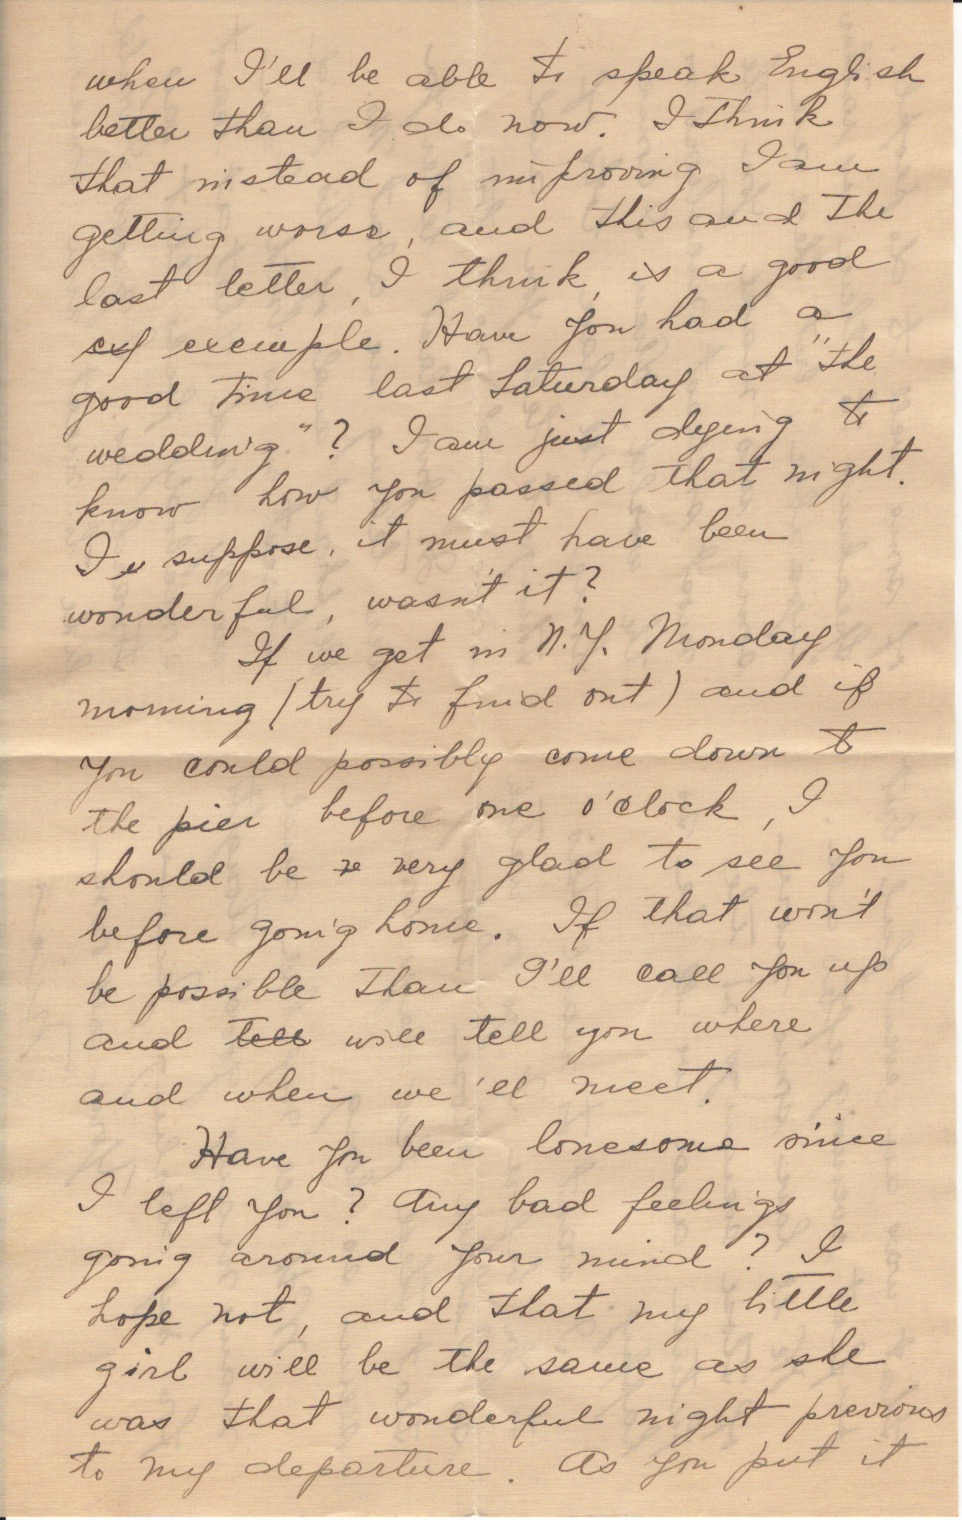 when I'll be able to speak English
better than I do now. I think
that instead of improving I am
getting worse, and this and the
last letter, I think, is a good
exemple. Have you had a
good time last Saturday at "the
wedding"? I am just dying to
know how you passed that night.
I suppose, it must have been
wonderful, wasn't it?
If we get in N.Y. Monday
morning (try to find out) and if
you could possibly come down to
the pier before one o'clock, I
should be very glad to see you
before going home. If that won't
be possible than I'll call you up
and tell will tell you where
and when we'll meet.
Have you been lonesome since
I left you? Any bad feelings
going around your mind? I
hope not, and that my little
girl will be the same as she
was that wonderful night previous
to my departure. As you put it